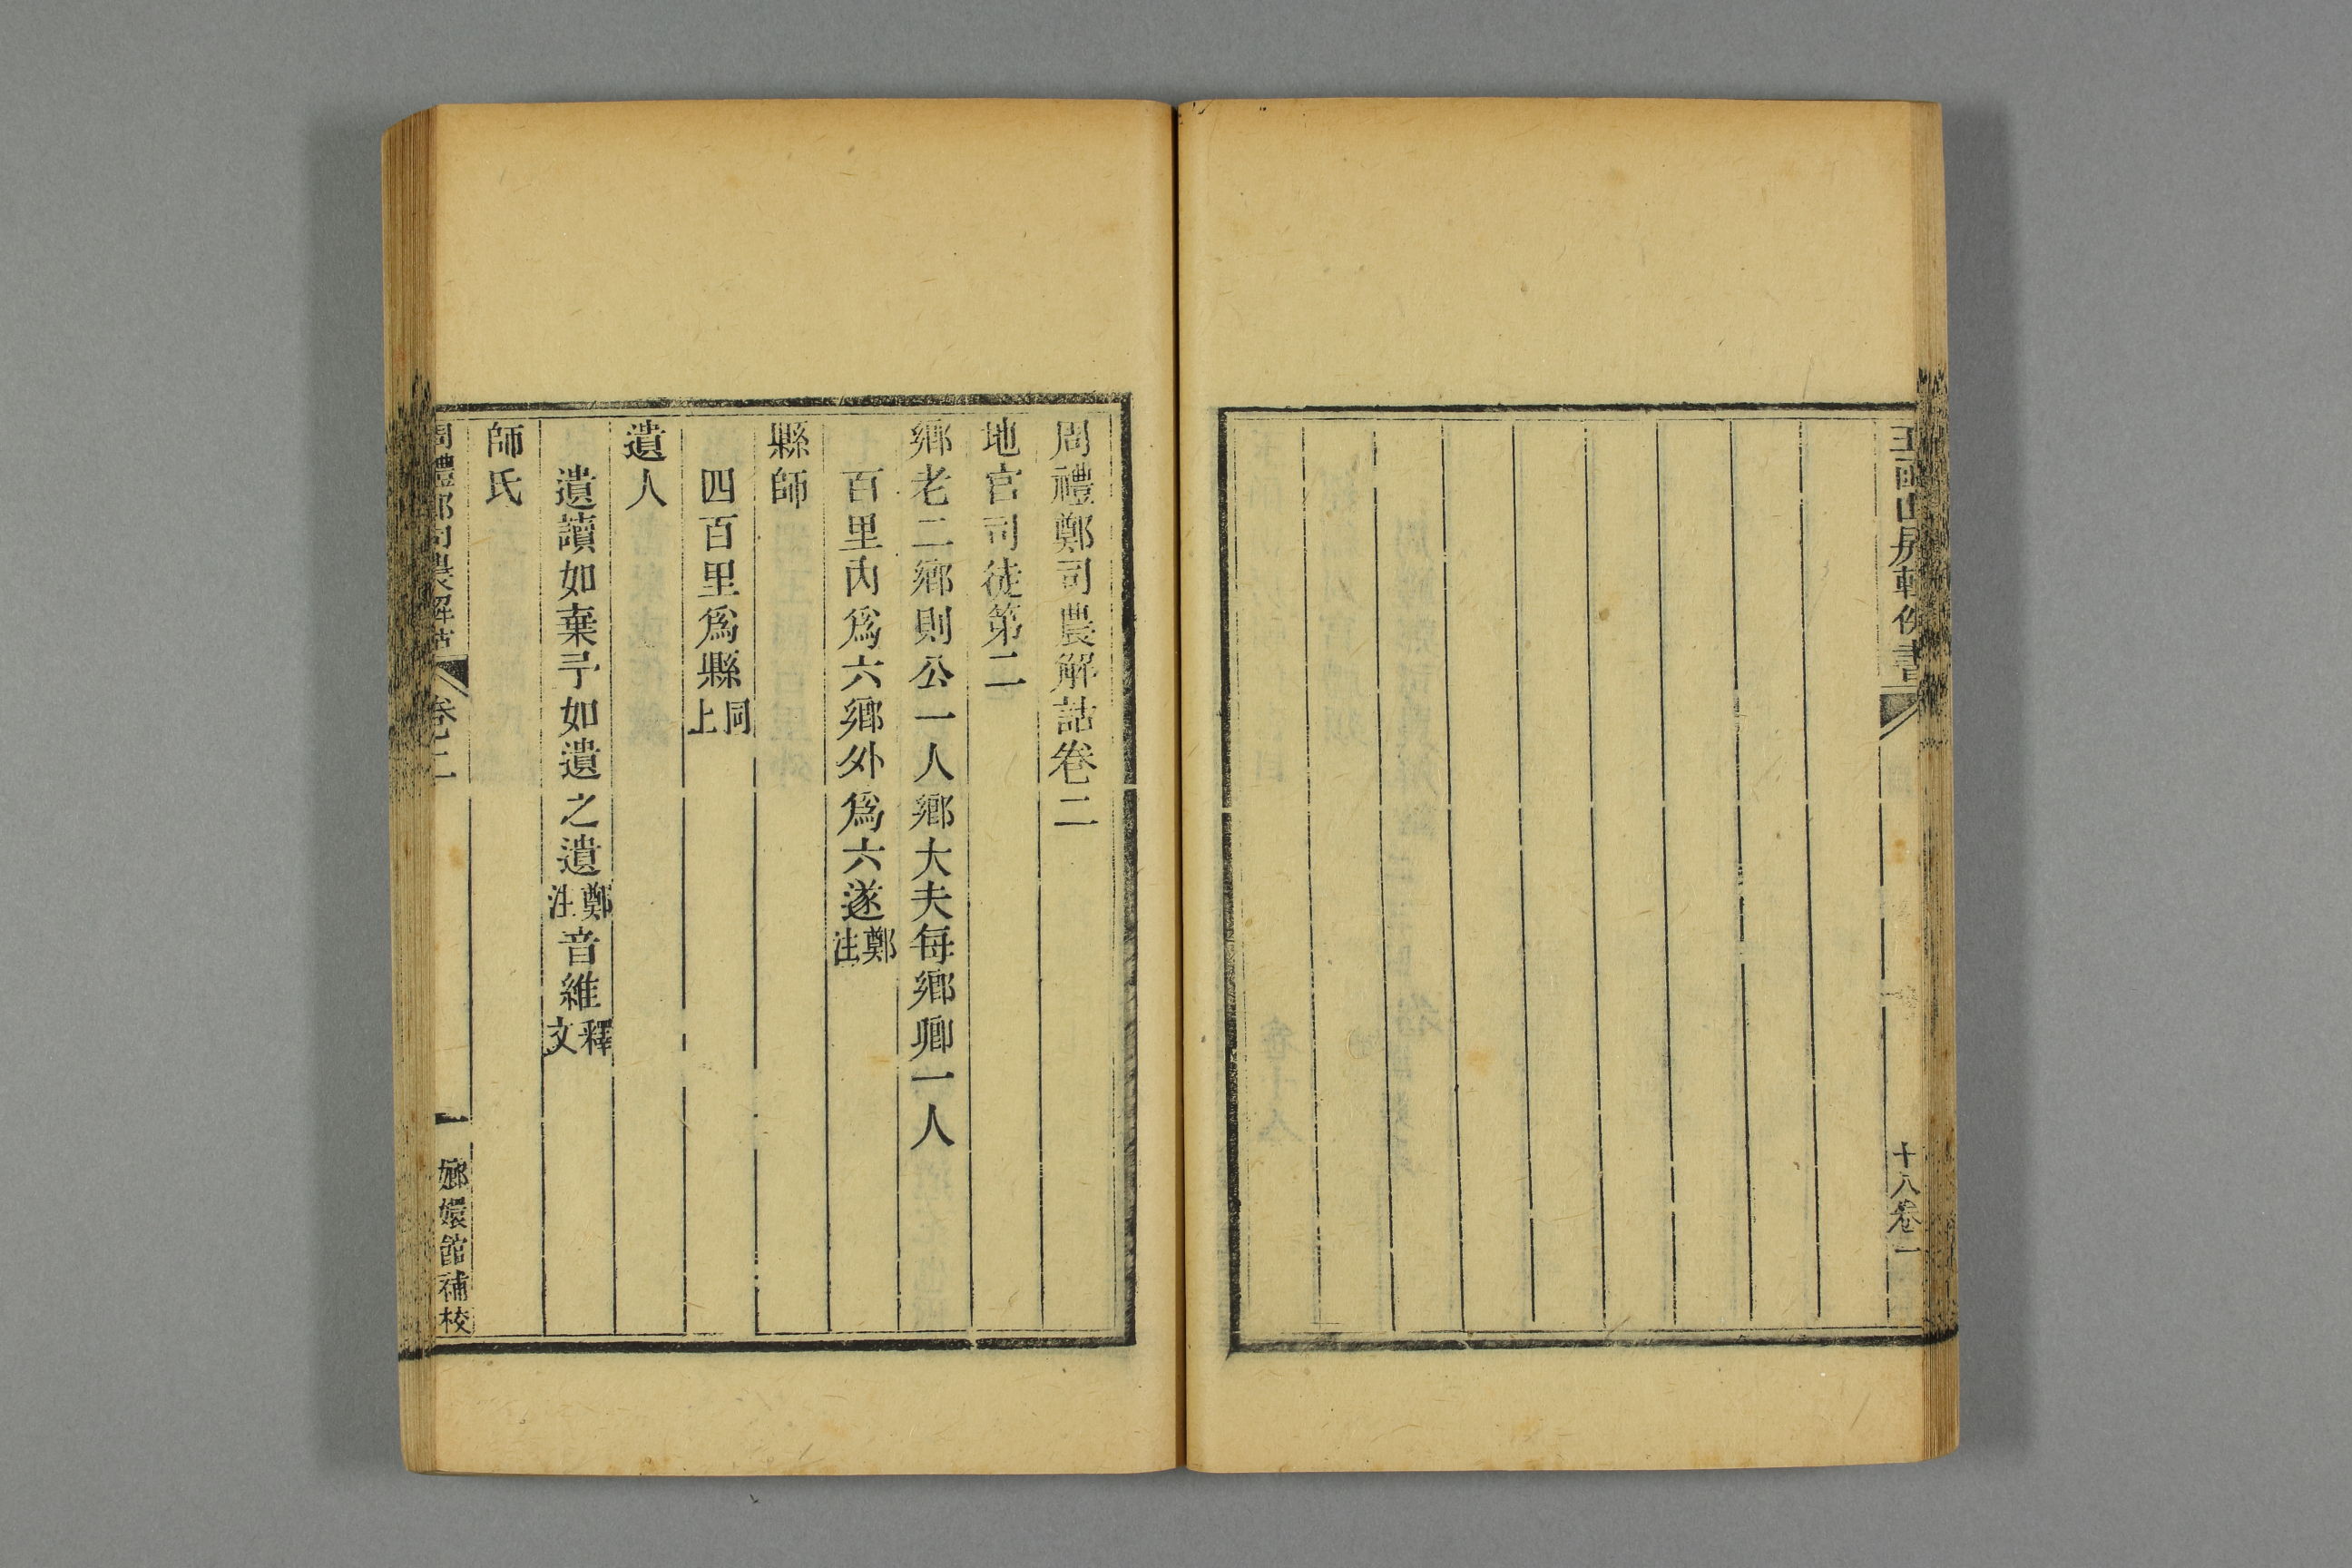 玉函山房輯佚書
十八卷一
周禮鄭司農解詁卷二
地官司徒第二
鄉老二鄉則公一人鄉大夫每鄉卿一人
百里內爲六鄉外爲六遂鄭注
縣師
四百里爲縣同上
遺人
遺讀如棄予如遺之遺鄭注音維釋文
師氏
周禮鄭司農解詁
卷二
一
嫏嬛館補校